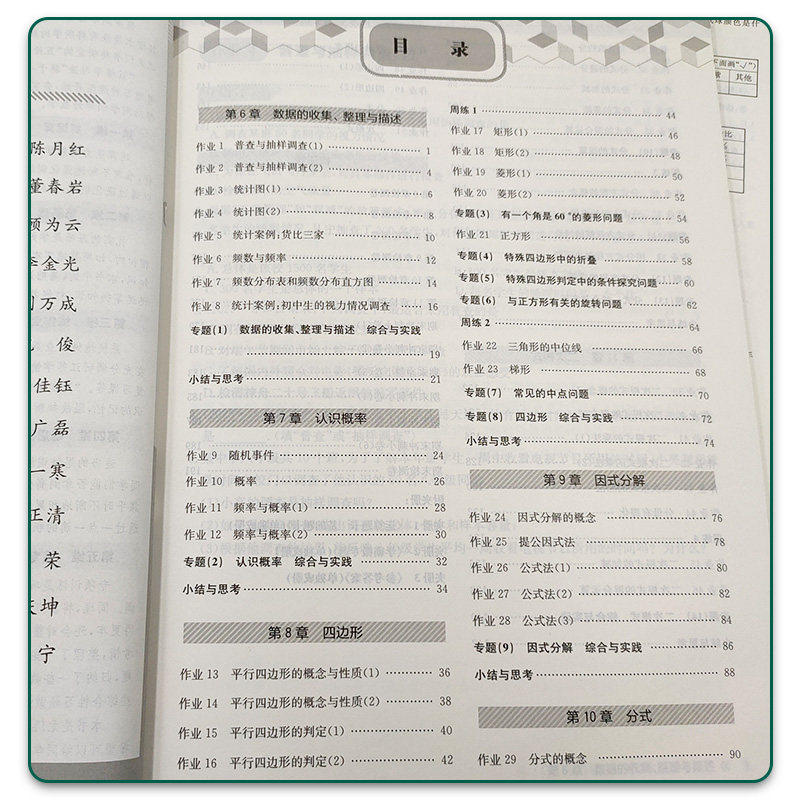 目 录
第6章 数据的收集、整理与描述
作业1 普查与抽样调查(1) 1
作业2 普查与抽样调查(2) 4
作业3 统计图(1) 6
作业4 统计图(2) 8
作业5 统计案例:货比三家 10
作业6 频数与频率 12
作业7 频数分布表和频数分布直方图 14
作业8 统计案例:初中生的视力情况调查 16
专题(1) 数据的收集、整理与描述 综合与实践
19
小结与思考 21
第7章 认识概率
作业9 随机事件 24
作业10 概率 26
作业11 频率与概率(1) 28
作业12 频率与概率(2) 30
专题(2) 认识概率 综合与实践 32
小结与思考 34
第8章 四边形
作业13 平行四边形的概念与性质(1) 36
作业14 平行四边形的概念与性质(2) 38
作业15 平行四边形的判定(1) 40
作业16 平行四边形的判定(2) 42
周练1 44
作业17 矩形(1) 46
作业18 矩形(2) 48
作业19 菱形(1) 50
作业20 菱形(2) 52
专题(3) 有一个角是60°的菱形问题 54
作业21 正方形 56
专题(4) 特殊四边形中的折叠 58
专题(5) 特殊四边形判定中的条件探究问题 60
专题(6) 与正方形有关的旋转问题 62
周练2 64
作业22 三角形的中位线 66
作业23 梯形 68
专题(7) 常见的中点问题 70
专题(8) 四边形 综合与实践 72
小结与思考 74
第9章 因式分解
作业24 因式分解的概念 76
作业25 提公因式法 78
作业26 公式法(1) 80
作业27 公式法(2) 82
作业28 公式法(3) 84
专题(9) 因式分解 综合与实践 86
小结与思考 88
第10章 分式
作业29 分式的概念 90
陈月红
董春岩
顾为云
李金光
万成
俊
佳钰
广磊
一寒
正清
荣
坤
宁
球颜色是什
面画“√”)
其他
比